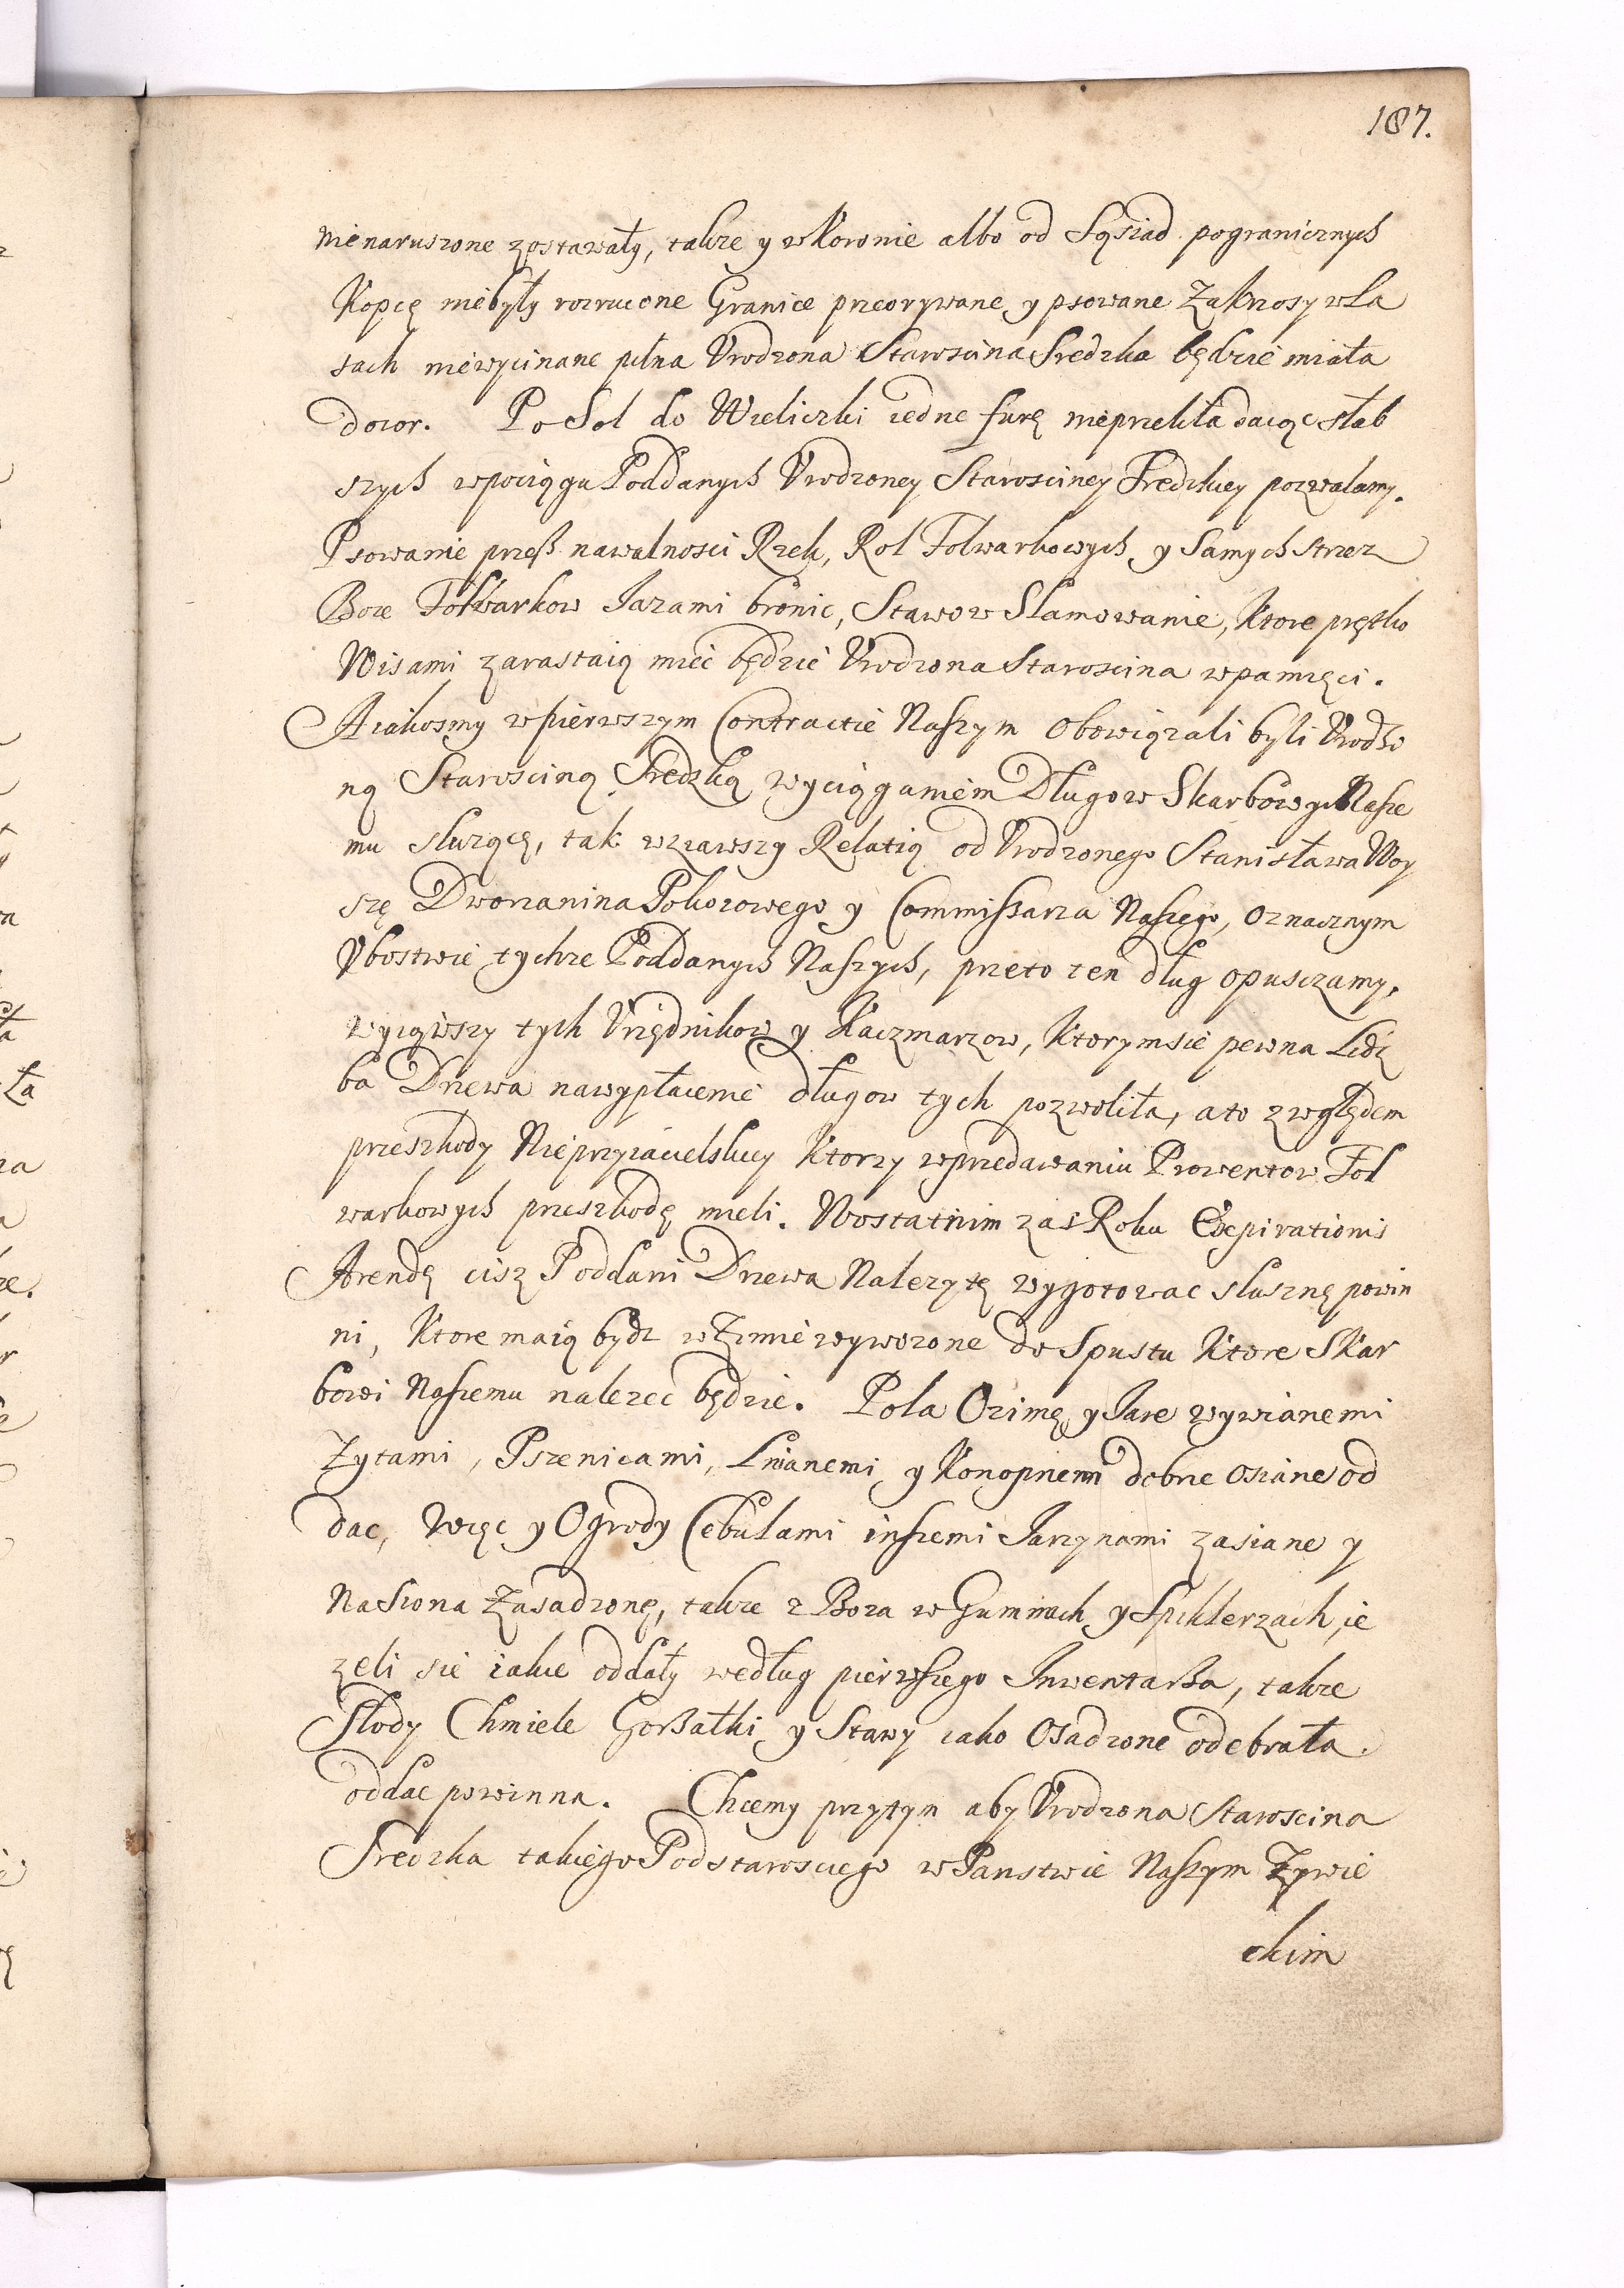 187.
nienaruszone zostawały, takze y w Koronie albo od Sąsiad pograniczných
Kopcę niebyły rozrucone Granice przeorywane y psowane Zakrosy w La
sach niewycinane pilna Vrodzona Starosćina Sredzka będzie miała
dozor. Po Sol do Wieliczki iedne furę nieprzebiła daiąc słab
szych wpociągu Poddanych Vrodzoney Starosciney Sredzkiey pozwalamy.
Psowanie przeß nawalnosci Rzek, Rol Folwarkowych y Samych strzez
Boze Folwarkow Jazami bronic, Stawow Slamowanie, Ktore prętko
Wisami zarastaią miec będzie Vrodzona Staroscina wpamięci.
A iakosmy wpierwszym Contractie Naszym obowiązali byli Vrodzo
ną Starosciną Sredzką wyciąganiem Długow Skarbowych Nasze
mu sluzącę, tak wziawszy Relatią od Vrodzonego Stanisława Woy
szę Dworzanina Pokoiowego y Commissarza Naszego, oznacznym
Vbostwie tychze Poddanych Naszych, przeto ten dług opusczamy,
wyiąwszy tych Vrzędnikow y Kaczmarzow, Ktorymsie pewna Licz
ba Drzewa nawypłacenie długow tych pozwoliła, ato względem
przeszkody Nieprzyiacielskiey Ktorzy wprzedawaniu Prowentow Fol
warkowych przeszkodę mieli. Wostatnim zas Roku Expirationis
Arendę cisz Poddani Drzewa Nalezytę wygotowac slusznę powin
ni, Ktore maią bydz wZimie wywozone do Spustu Ktore Skar
bowi Naszemu nalezec będzie. Pola Ozimę y Jare wywianemi
Zytami, Pszenicami, Lnianemi y Konopnemi dobrze osiane od
dac, Więc y Ogrody Cebulami inszemi Jarzynami zasiane y
Nasiona Zasadzonę, takze zBoza w Gumnach y Spiklerzach, ie
zeli sie iakie oddały według pierwszego Inwentaßa, takze
Slody Chmiele Goßałki y Stawy iako Osadzone odebrała.
oddac powinna. Chcemy przytym aby Vrodzona Staroscina
Sredzka takiego Podstarosciego w Panstwie Naszym Zywie
ckim